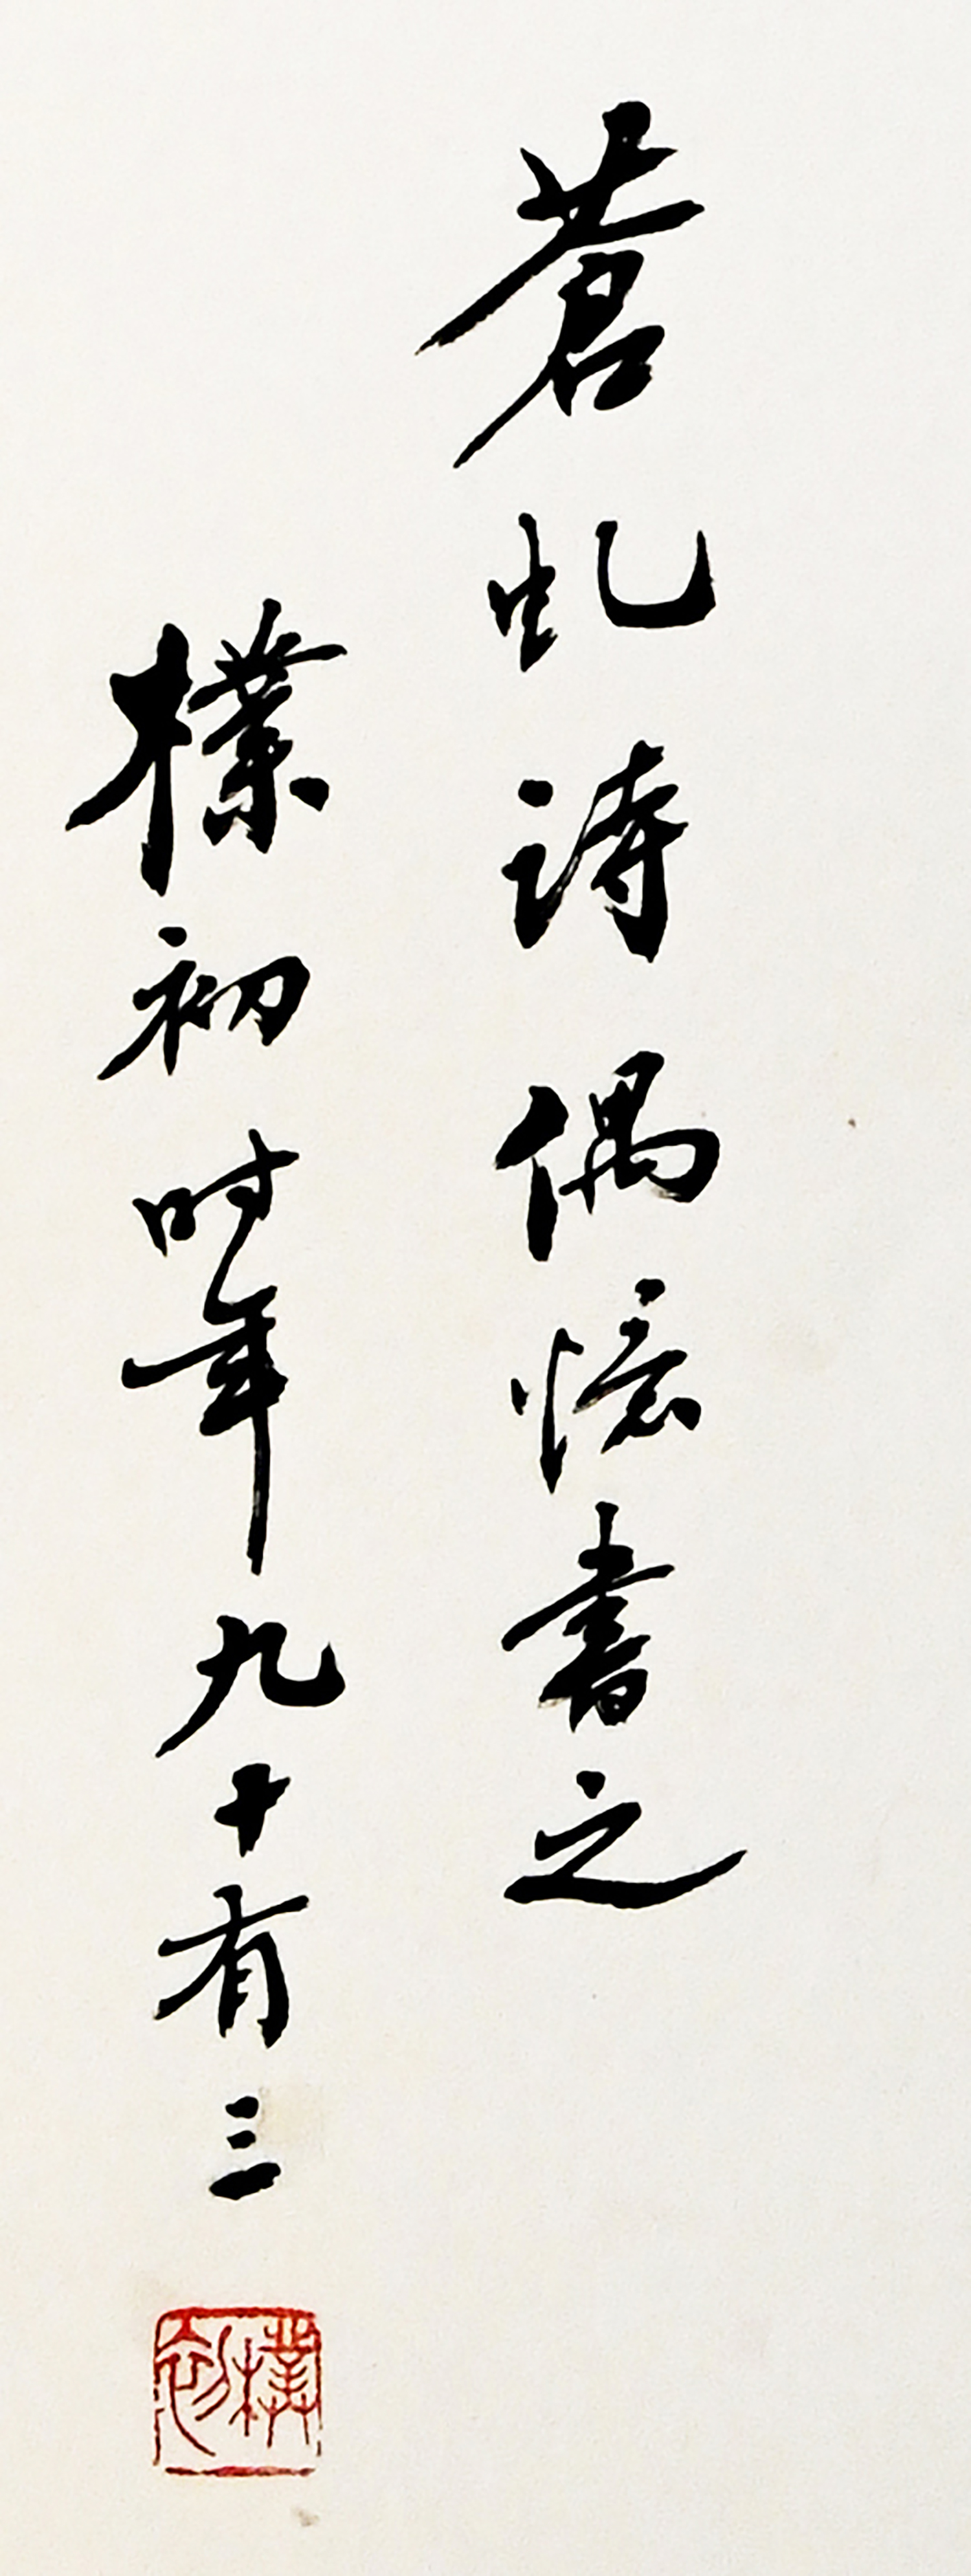 蒼虬詩偶憶書之
樸初时年九十有三
樸初